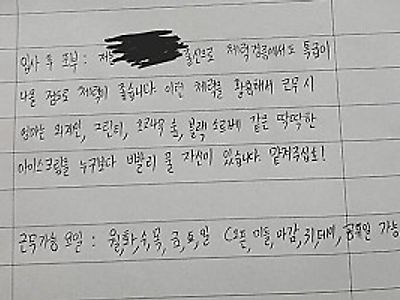 입사 후 포부 : 저는 출신으로 체력검정에서도 특급이
나올 정도로 체력이 좋습니다. 이런 체력을 활용해서 근무 시
엄마는 외계인, 그린티, 초코나무 숲, 블랙 소르베 같은 딱딱한
아이스크림을 누구보다 빨리 풀 자신이 있습니다. 맡겨주십쇼!
근무가능 요일 : 월,화,수,목,금,토,일 (오픈,미들,마감,키,데이,공휴일 가능